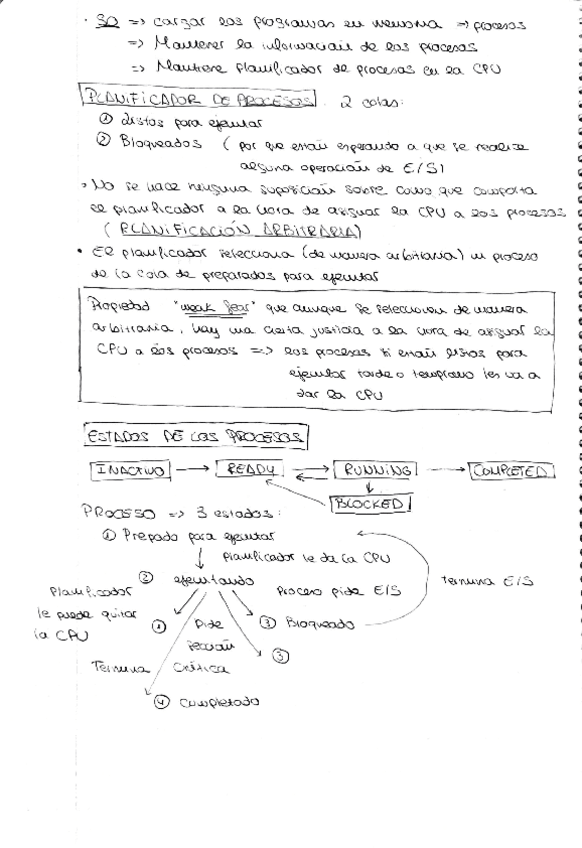 · SO => cargar los programas en memoria => procesos
=> Mantener la información de los procesos
=> Mantiene planificador de procesos en la CPU
PLANIFICADOR DE PROCESOS 2 colas:
① Listos para ejecutar
② Bloqueados (por que están esperando a que se realize
alguna operación de E/S)
· No se hace ninguna suposición sobre como que comporta
el planificador a la hora de asignar la CPU a los procesos
(PLANIFICACIÓN ARBITRARIA)
· El planificador selecciona (de manera arbitraria) un proceso
de la cola de preparados para ejecutar
Propiedad "weak fear" que aunque se seleccionen de manera
arbitraria, hay una cierta justicia a la hora de asignar la
CPU a los procesos => los procesos si están listos para
ejecutar tarde o temprano les va a
dar la CPU
ESTADOS DE LOS PROCESOS
INACTIVO → READY ⇄ RUNNING → COMPLETED
BLOCKED
PROCESO => 3 estados:
① Prepado para ejecutar
↓ planificador le da la CPU
② ejecutando Proceso pide E/S Termina E/S
Planificador
le puede quitar
la CPU ① Pide ③ Bloqueado
sección ③
Termina crítica
④ completado